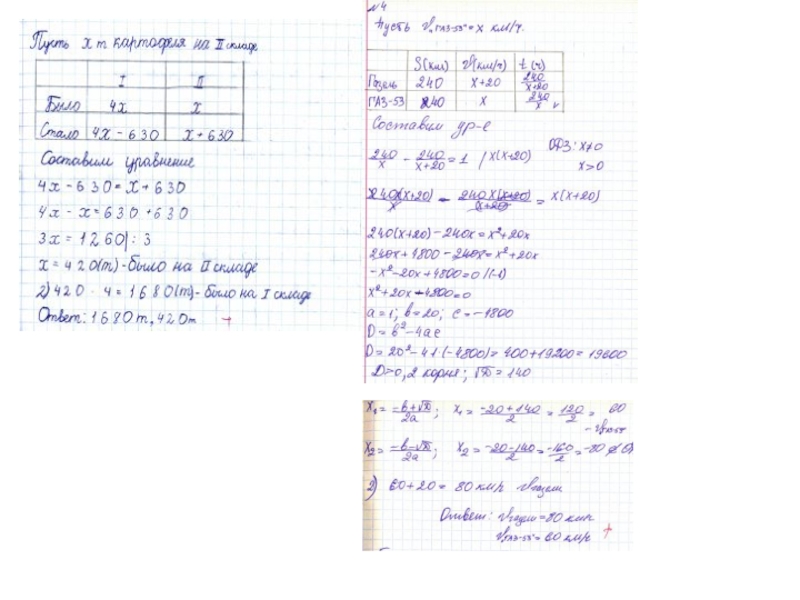 Пусть x т картофеля на II складе
I II
Было 4x x
Стало 4x - 630 x + 630
Составим уравнение
4x - 630 = x + 630
4x - x = 630 + 630
3x = 1260 | : 3
x = 420(т) - было на II складе
2) 420 · 4 = 1680(т) - было на I складе
Ответ: 1680т, 420т +
№4
Пусть V ГАЗ-53 = x км/ч.
S(км) V(км/ч) t(ч)
Газель 240 x+20 240/(x+20)
ГАЗ-53 240 x 240/x
Составим ур-е
240/x - 240/(x+20) = 1 / x(x+20) ОДЗ: x≠0
x>0
240x(x+20)/x - 240x(x+20)/(x+20) = x(x+20)
240(x+20) - 240x = x²+20x
240x + 4800 - 240x = x²+20x
-x² - 20x + 4800 = 0 /(-1)
x² + 20x - 4800 = 0
a = 1; b = 20; c = -4800
D = b² - 4ac
D = 20² - 4·1·(-4800) = 400 + 19200 = 19600
D>0, 2 корня; √D = 140
x₁ = (-b+√D)/2a; x₁ = (-20+140)/2 = 120/2 = 60
- V ГАЗ-53
x₂ = (-b-√D)/2a; x₂ = (-20-140)/2 = -160/2 = -80
2) 60 + 20 = 80 км/ч V газели
Ответ: V газели = 80 км/ч
V ГАЗ-53 = 60 км/ч +